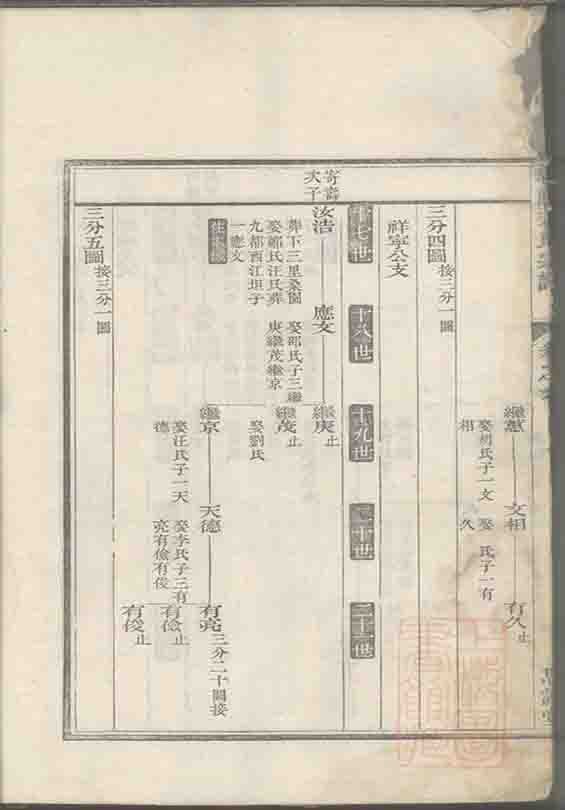 繼蕙
娶胡氏子一文
相
文相
娶 氏子一有
久
有久止
三分四圖接三分一圖
祥寧公支
十七世
十八世
十九世
二十世
二十一世
寄壽
次子
汝浩
葬下三里桑園
娶鄭氏汪氏葬
九都西江坦子
一應文
應文
娶邵氏子三繼
庚繼茂繼京
繼庚止
繼茂止
娶劉氏
繼京
娶汪氏子一天
德
天德
娶李氏子三有
亮有儉有俊
有亮三分二十圖接
有儉止
有俊止
三分五圖接三分一圖